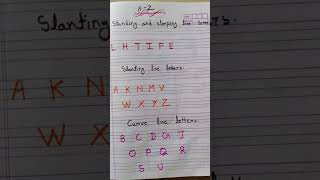 A-Z
Standing and sleeping line letters
L H T I F E
Slanting line letters.
A K N M V
W X Y Z
Curve line letters.
B C D G J
O P Q R
S U